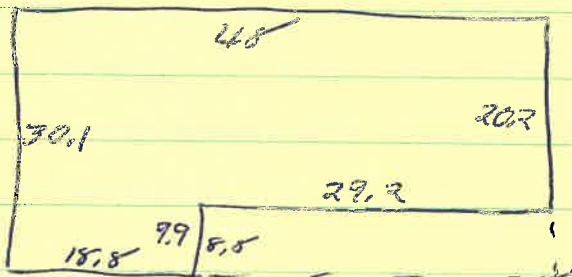 48
30.1
20.2
29.2
9.9 8.8
18.8